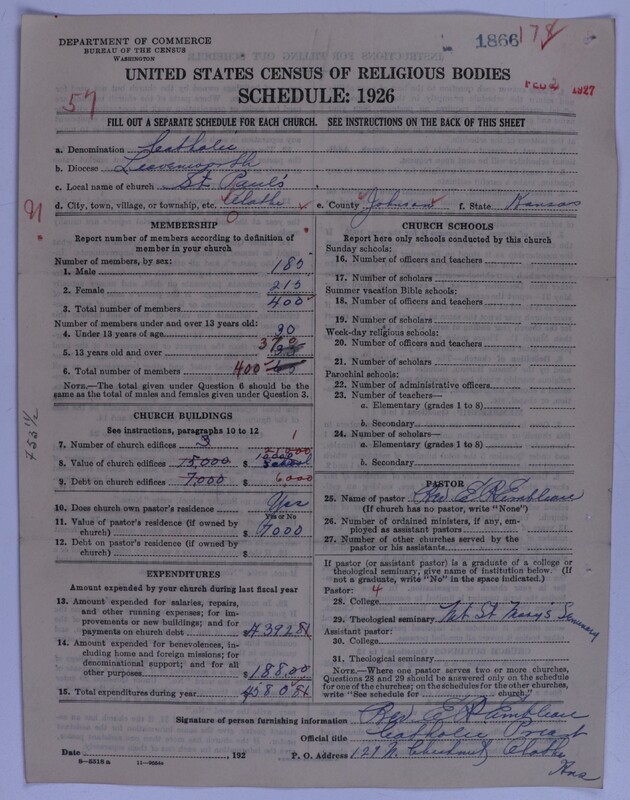 DEPARTMENT OF COMMERCE
BUREAU OF THE CENSUS
WASHINGTON
1866
178
UNITED STATES CENSUS OF RELIGIOUS BODIES
SCHEDULE: 1926
57
1927
FILL OUT A SEPARATE SCHEDULE FOR EACH CHURCH. SEE INSTRUCTIONS ON THE BACK OF THIS SHEET
a. Denomination Catholic
b. Diocese Leavenworth
c. Local name of church St. Paul's
d. City, town, village, or township, etc. Olathe e. County Johnson f. State Kansas
MEMBERSHIP
Report number of members according to definition of
member in your church
Number of members, by sex:
1. Male 185
2. Female 215
3. Total number of members 400
Number of members under and over 13 years old:
4. Under 13 years of age 30
5. 13 years old and over 370
6. Total number of members 400
NOTE.—The total given under Question 6 should be
same as the total of males and females given under Question 3.
753 1/2
CHURCH BUILDINGS
See instructions, paragraphs 10 to 12
7. Number of church edifices 3 1
8. Value of church edifices 75,000 $
9. Debt on church edifices 7,000 $ 6000
10. Does church own pastor's residence Yes
Yes or No
11. Value of pastor's residence (if owned by
church) $ 7000
12. Debt on pastor's residence (if owned by
church) $
EXPENDITURES
Amount expended by your church during last fiscal year
13. Amount expended for salaries, repairs,
and other running expenses; for im-
provements or new buildings; and for
payments on church debt $ 4392 81
14. Amount expended for benevolences, in-
cluding home and foreign missions; for
denominational support; and for all
other purposes $ 188.00
15. Total expenditures during year 4580 81
CHURCH SCHOOLS
Report here only schools conducted by this church
Sunday schools:
16. Number of officers and teachers
17. Number of scholars
Summer vacation Bible schools:
18. Number of officers and teachers
19. Number of scholars
Week-day religious schools:
20. Number of officers and teachers
21. Number of scholars
Parochial schools:
22. Number of administrative officers
23. Number of teachers—
a. Elementary (grades 1 to 8)
b. Secondary
24. Number of scholars—
a. Elementary (grades 1 to 8)
b. Secondary
PASTOR
25. Name of pastor Rev E R
(If church has no pastor, write "None")
26. Number of ordained ministers, if any, em-
ployed as assistant pastors
27. Number of other churches served by the
pastor or his assistants
If pastor (or assistant pastor) is a graduate of a college or
theological seminary, give name of institution below. (If
not a graduate, write "No" in the space indicated.)
Pastor: 4
28. College
29. Theological seminary Mt St Mary's Seminary
Assistant pastor:
30. College
31. Theological seminary
NOTE.—Where one pastor serves two or more churches,
Questions 28 and 29 should be answered only on the schedule
for one of the churches; on the schedules for the other churches,
write "See schedule for church."
Signature of person furnishing information Rev. E R
Official title Catholic Priest
Date , 192 P. O. Address 127 N. Chestnut Olathe
Kns
8-5518 a